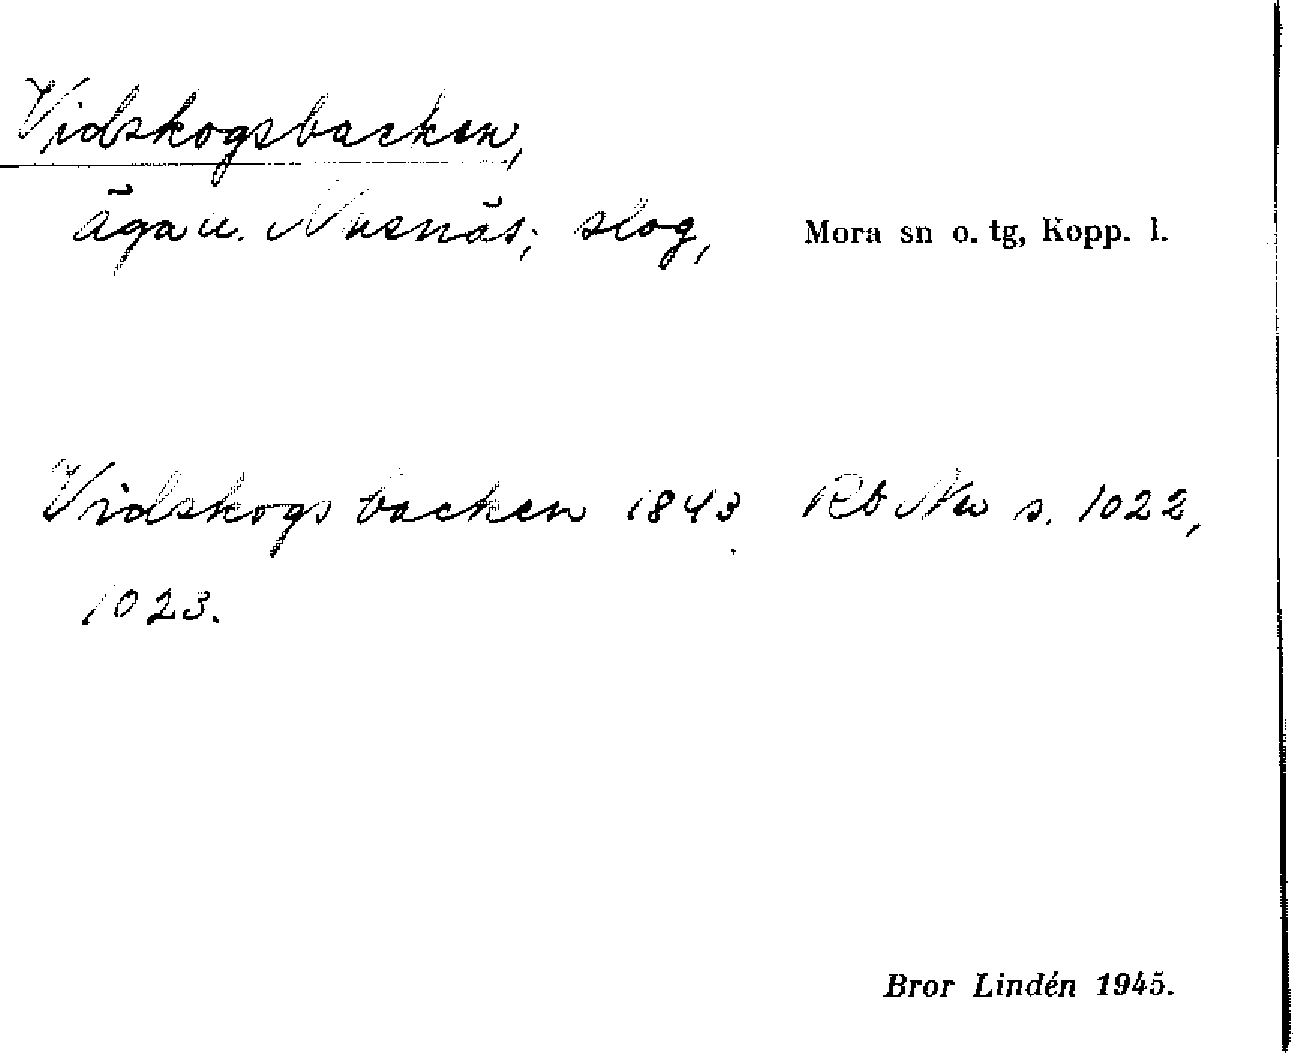 Vidskogsbacken,
äga u. Nusnäs; slog, Mora sn o. tg, Kopp. l.
Vidskogs backen 1843 Rb Nu s. 1022,
1023.
Bror Lindén 1945.